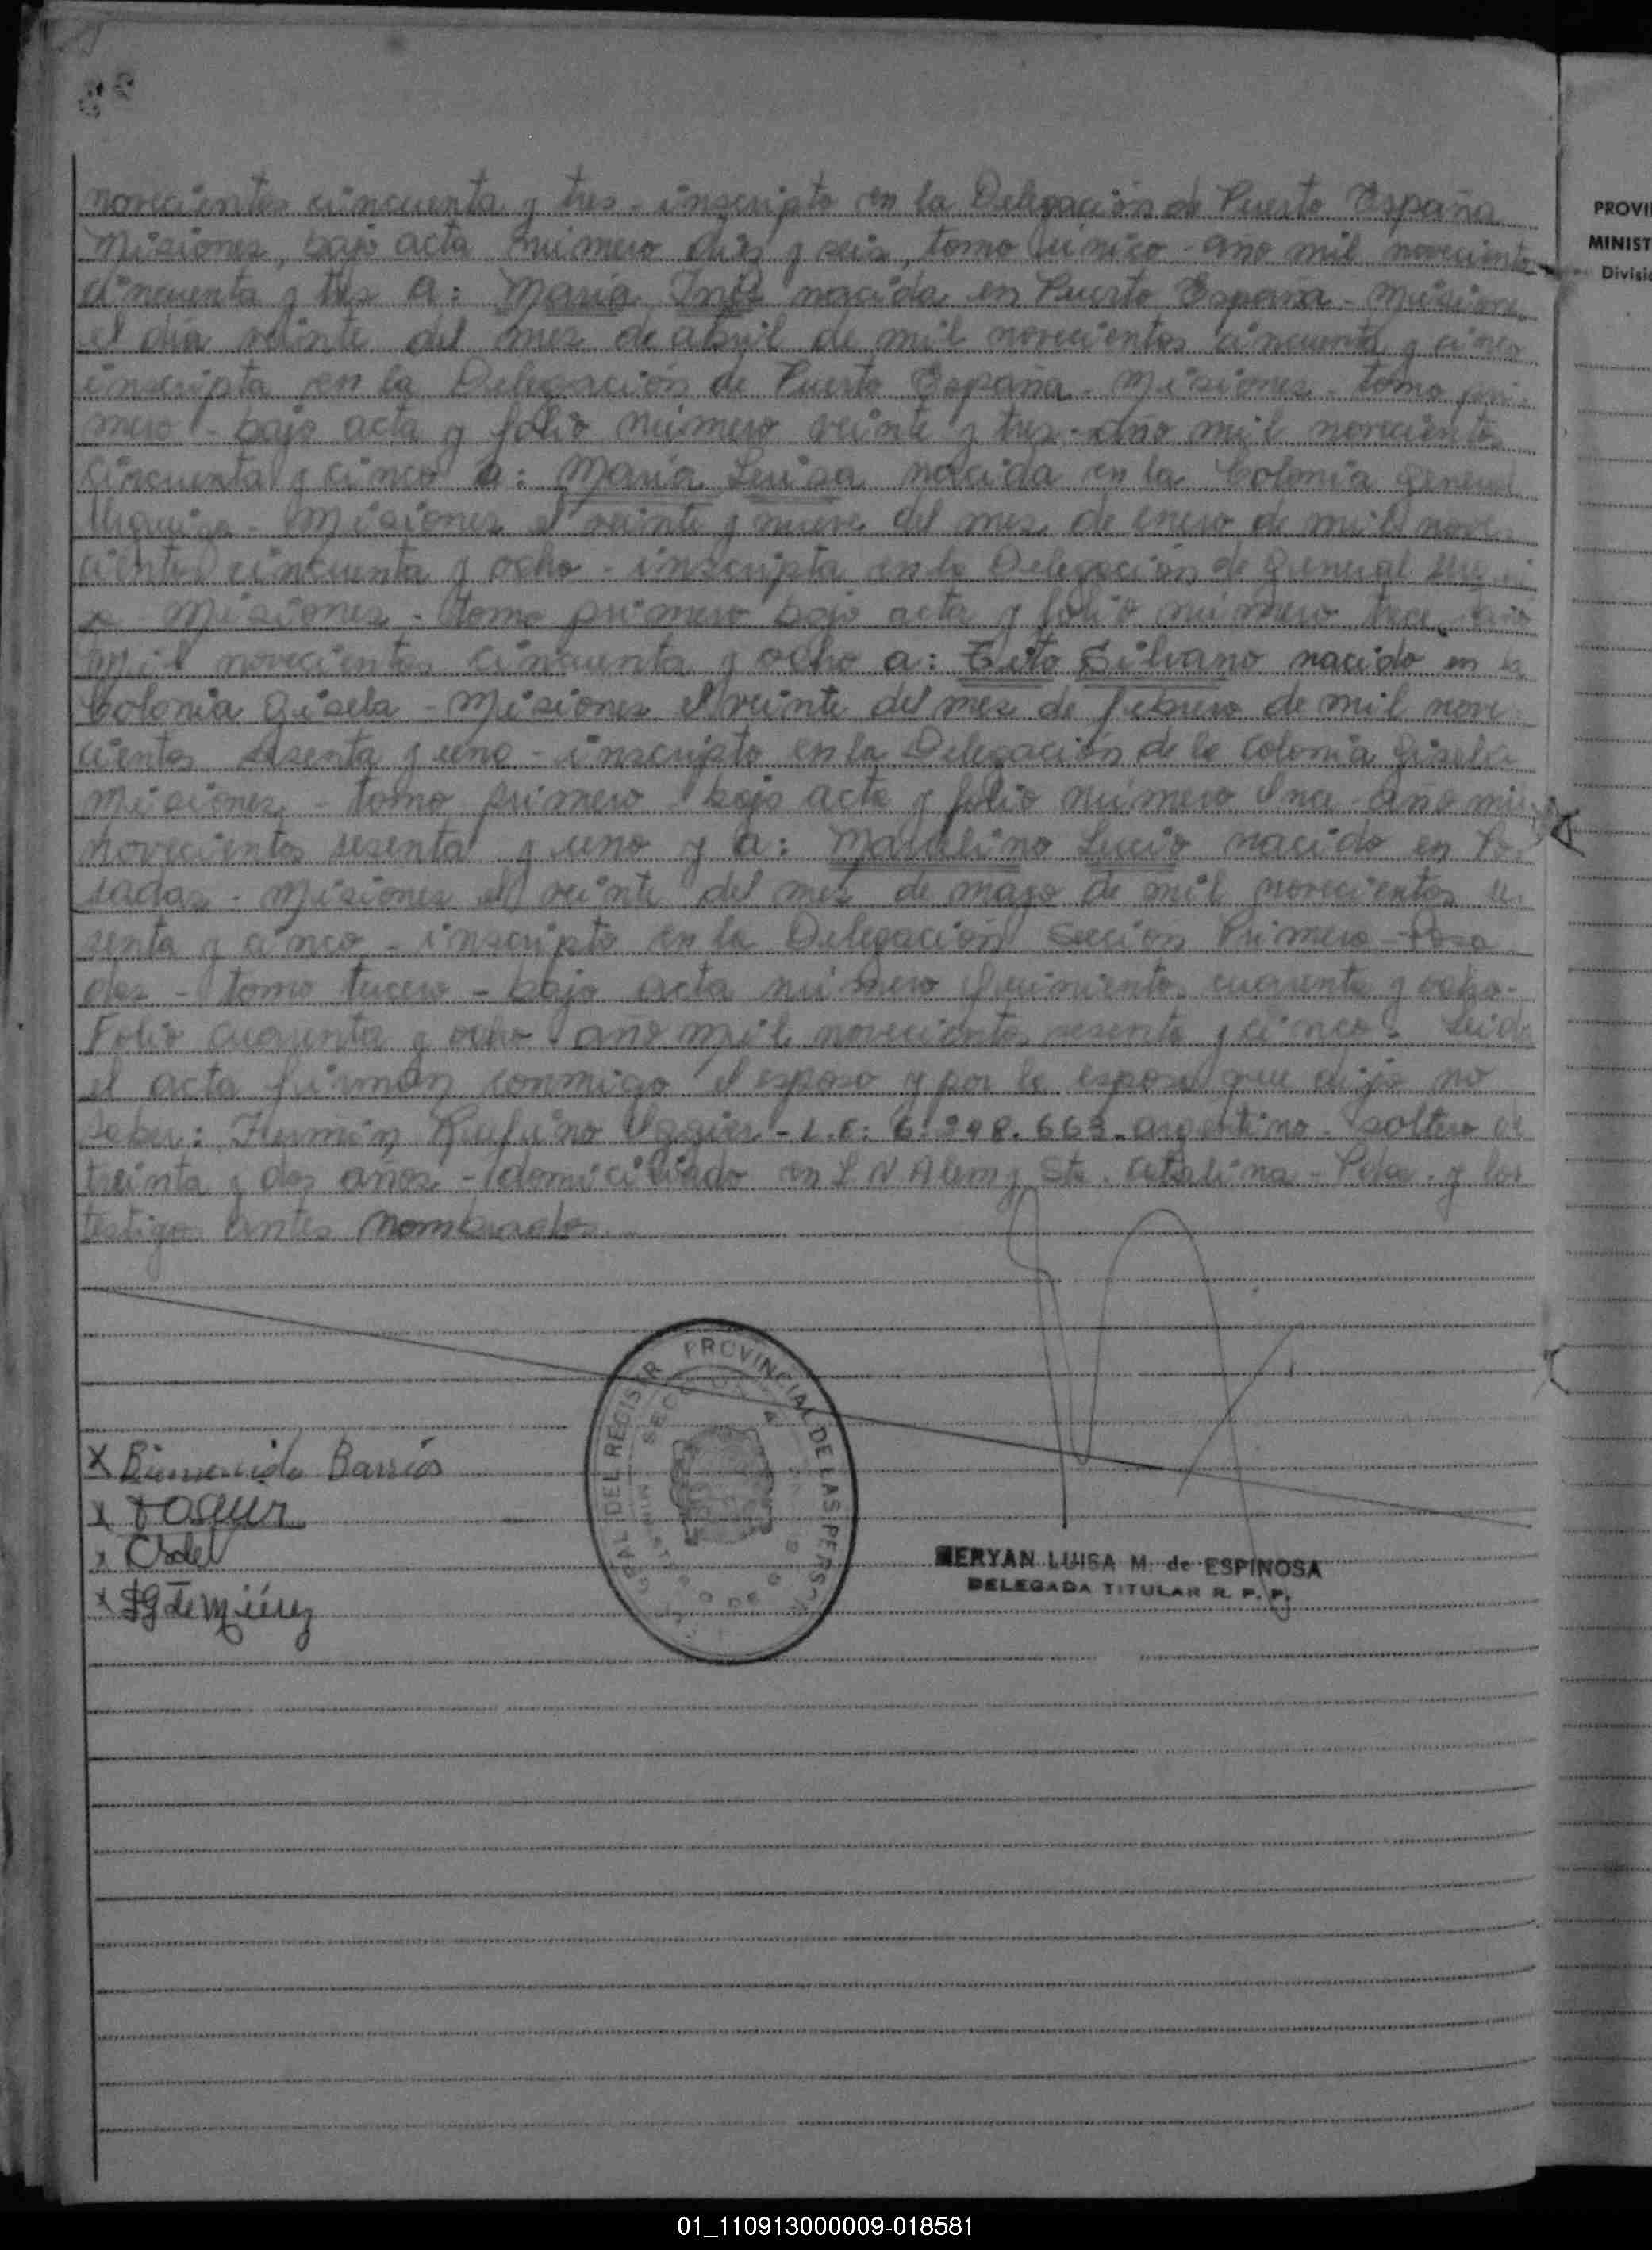 novecientos cincuenta y tres - inscripto en la Delegación de Puerto España
Misiones, bajo acta número diez y seis, tomo único - año mil novecientos
cincuenta y tres a: María Inés nacida en Puerto España - Misiones
el día veinte del mes de abril de mil novecientos cincuenta y cinco
inscripta en la Delegación de Puerto España - Misiones - tomo pri-
mero - bajo acta y folio número veinte y tres - año mil novecientos
cincuenta y cinco a: María Luisa nacida en la Colonia General
Urquiza - Misiones el veinte y nueve del mes de enero de mil nove-
cientos cincuenta y ocho - inscripta en la Delegación de General Urqui
za Misiones - tomo primero bajo acta y folio número trece - año
mil novecientos cincuenta y ocho a: Tito Silvano nacido en la
Colonia Gisela - Misiones el veinte del mes de febrero de mil nove
cientos sesenta y uno - inscripto en la Delegación de la Colonia Gisela
Misiones - tomo primero - bajo acta y folio número Una - año mil
novecientos sesenta y uno y a: Marcelino Lucio nacido en Po-
sadas - Misiones el veinte del mes de mayo de mil novecientos se-
senta y cinco - inscripto en la Delegación Sección Primera - Posa
das - tomo tercero - bajo acta número Quinientos cuarenta y ocho -
Folio cuarenta y ocho año mil novecientos sesenta y cinco - Leida
el acta firman conmigo el esposo y por la esposa que dijo no
saber: Fermín Rufino - L.E: 6.298.663 - argentino - soltero de
treinta y dos años - domiciliado en L N Alem y Sta. Catalina - Pdas. y los
testigos antes nombrados
PROVINCIAL DE LAS PERS
DEL REGIS
x Bienvenido Barrios
x
x
x
MERYAN LUISA M. de ESPINOSA
DELEGADA TITULAR R. P. P.
PROVI
MINIST
Divisi
01_110913000009-018581